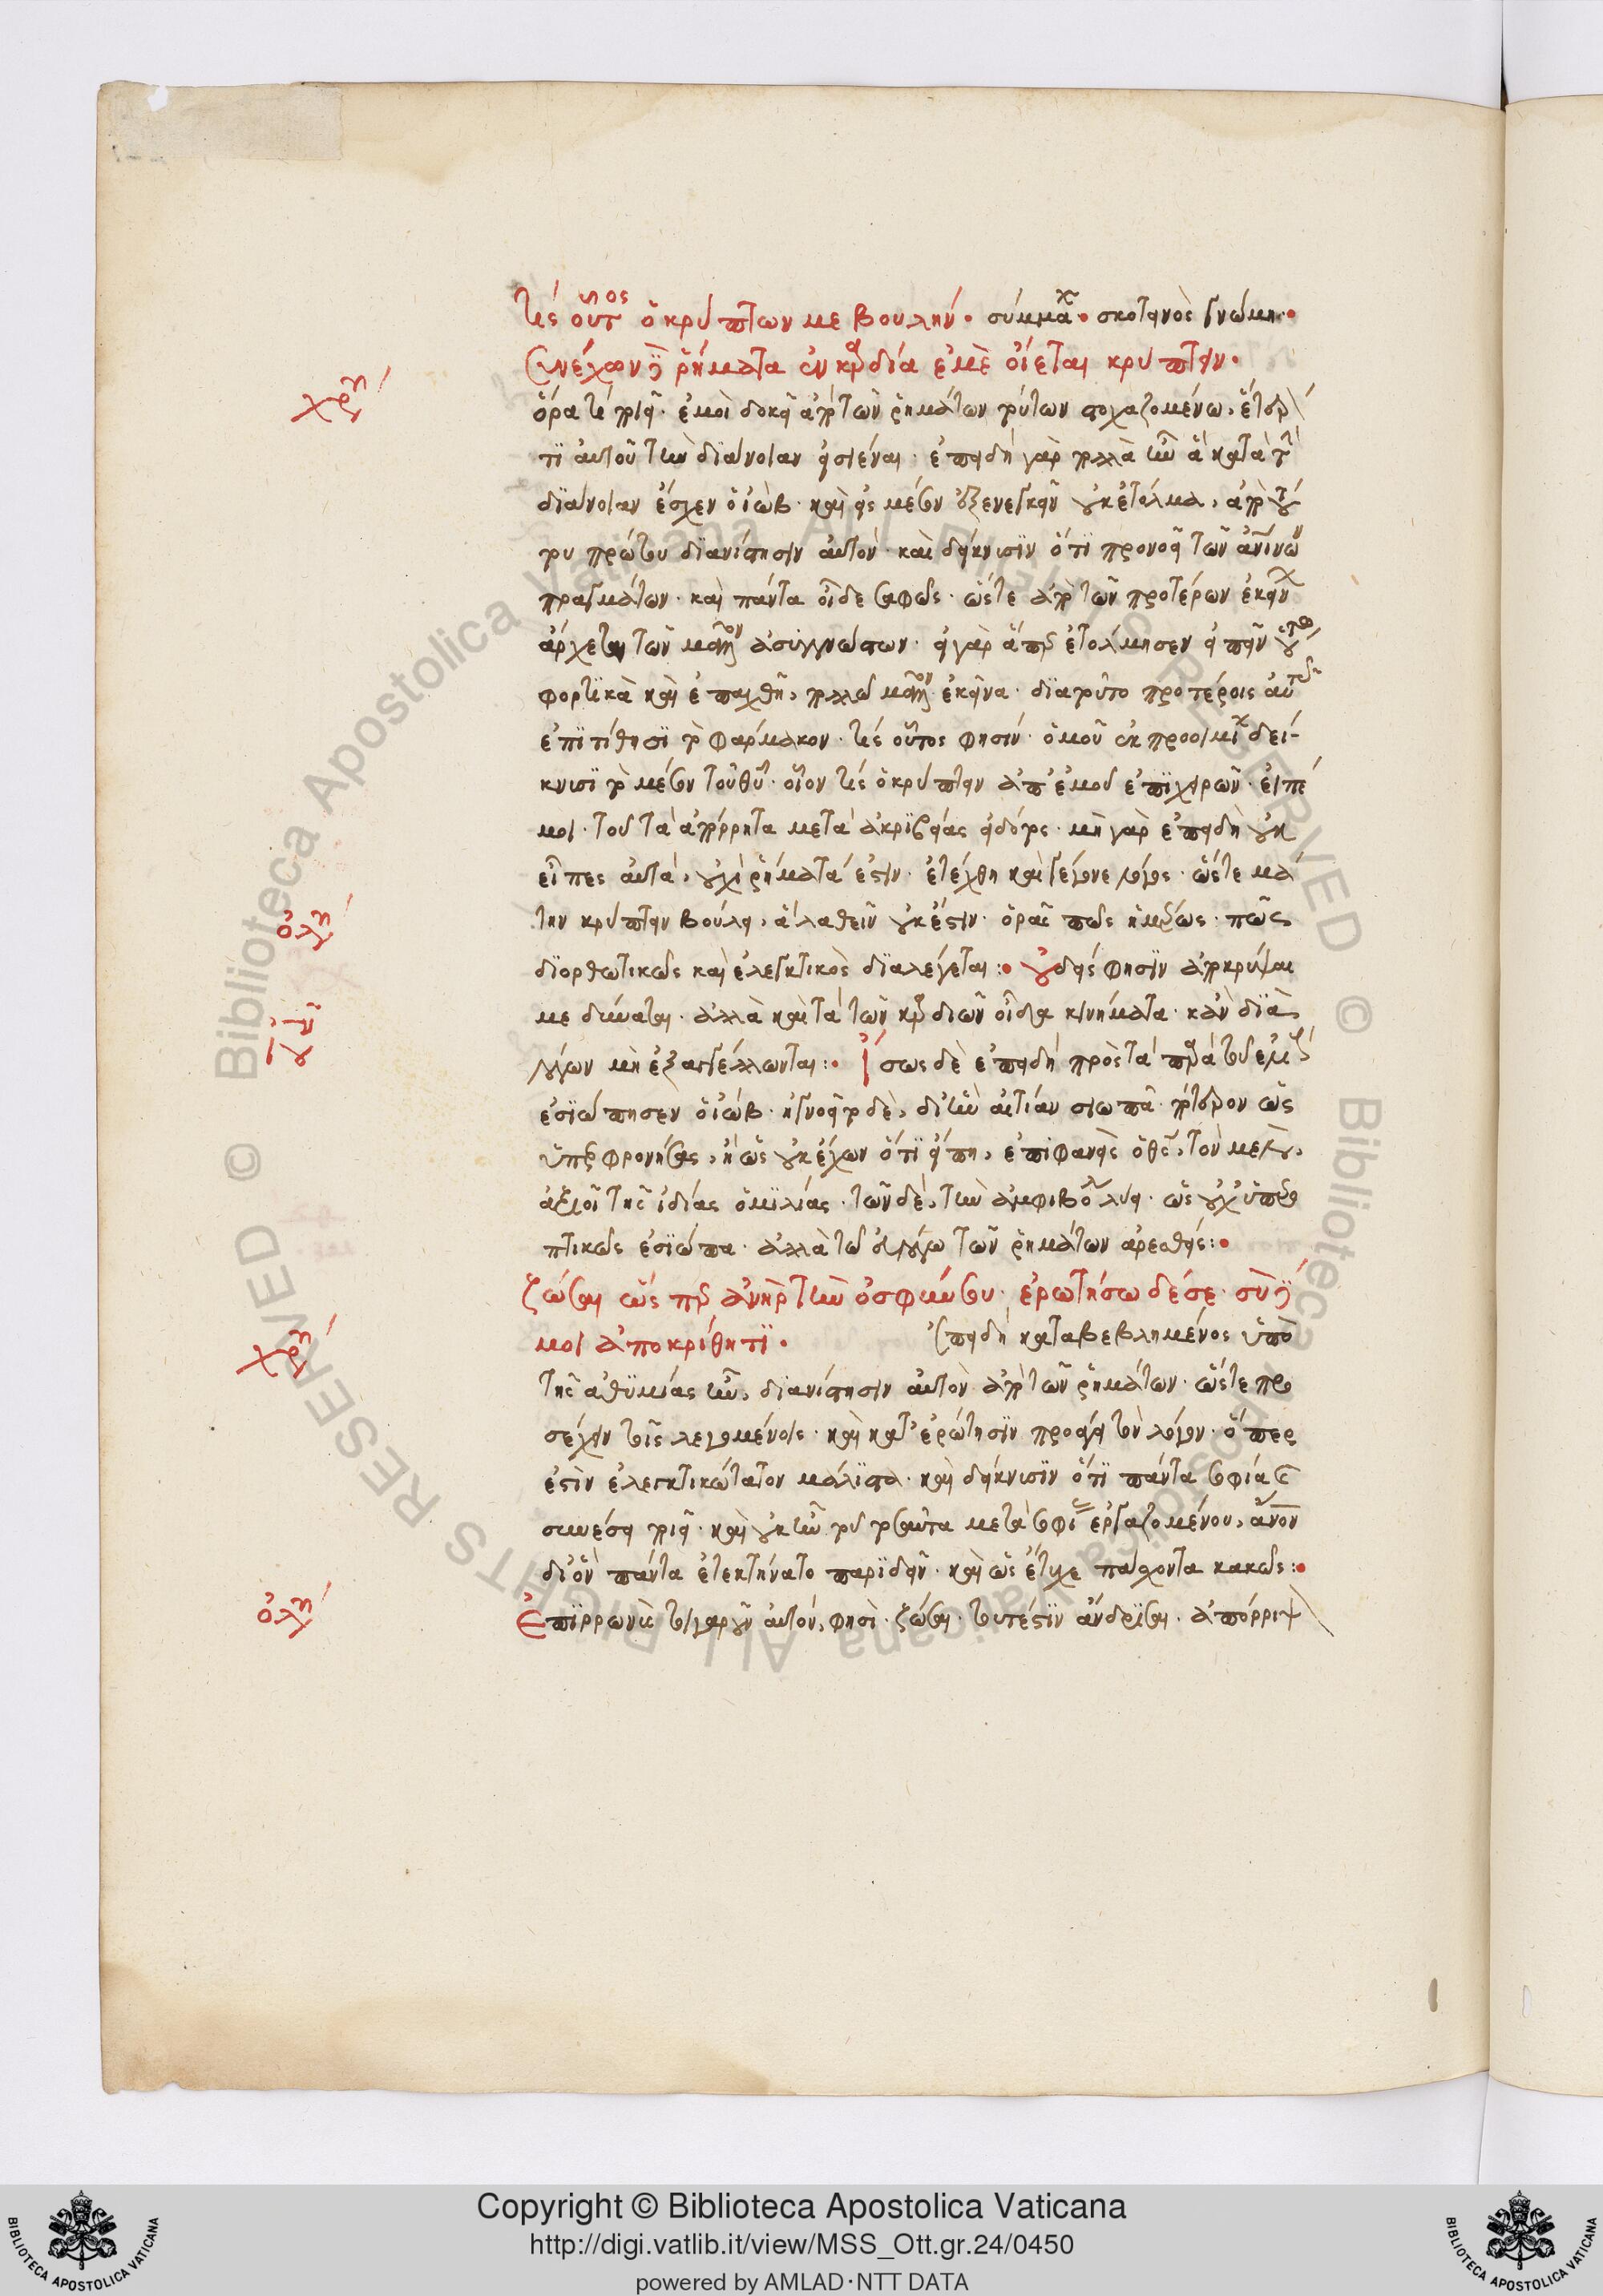 τίς οὗτος ὁ κρύπτων με βουλήν· σύμμαχ· σκοτεινὸς γνώμην·
συνέχων δὲ ῥήματα ἐν καρδία ἐμὲ οἴεται κρύπτειν·
χρυ
ὅρα τί ποιεῖ· ἐμοὶ δοκεῖ ἀπὸ τῶν ῥημάτων τούτων στοχαζομένω, ἕτερόν
τι αὐτοῦ τὴν διάνοιαν εἰσιέναι· ἐπειδὴ γὰρ πολλὰ ἦν ἃ κατὰ τὴν
διάνοιαν ἔσχεν ὁ ἰώβ· καὶ εἰς μέσον ἐξενεγκεῖν οὐκ ἐτόλμα, ἀπὸ τού
του πρώτου διανίστησιν αὐτόν· καὶ δείκνυσιν ὅτι προνοεῖ τῶν ἀνθρωπίνων
πραγμάτων· καὶ πάντα οἶδε σαφῶς· ὥστε ἀπὸ τῶν προτέρων ἐκείνων
ἄρχεται τῶν μᾶλλον ἀσυγγνώστων· εἰ γὰρ ἅπερ ἐτόλμησεν εἰπεῖν οὕτω
φορτικὰ καὶ ἐπαχθῆ, πολλῶ μᾶλλον ἐκεῖνα· διατοῦτο προτέροις αὐτοῖς
ἐπιτίθησι τὸ φάρμακον· τίς οὗτος φησίν· ὁμοῦ ἐκ προοιμίων δεί-
κνυσι τὸ μέσον τοῦ θεοῦ· οἷον τίς ὁ κρύπτειν ἀπ' ἐμοῦ ἐπιχειρῶν· εἰπέ
μοι· τοῦ τὰ ἀπόρρητα μετὰ ἀκριβείας εἰδότος· μὴ γὰρ ἐπειδὴ οὐκ
εἶπες αὐτά, οὐχὶ ῥήματά ἐστιν· ἐλέχθη καὶ γέγονε λόγος· ὥστε μά
την κρύπτειν βούλει, ἃ λαθεῖν οὐκ ἔστιν· ὁρᾶς πῶς ἡμέρως· πῶς
ολυ
διορθωτικῶς καὶ ἐλεγκτικῶς διαλέγεται:· οὐδείς φησιν ἀποκρύψαι
με δύναται· ἀλλὰ καὶ τὰ τῶν καρδιῶν οἶδα κινήματα· κἂν διὰ
λόγων μὴ ἐξαγγέλλωνται:· ἴσως δὲ ἐπειδὴ πρὸς τὰ
ἐσιώπησεν ὁ ἰώβ· ἠγνοεῖτο δὲ, δι' ἣν αἰτίαν σιωπᾶ· πότερον ὡς
ὑπερφρονήσας, ἢ ὡς οὐκ ἔχων ὅτι εἴπη, ἐπιφανεὶς ὁ θεὸς, τὸν
ἀξιοῖ τῆς ἰδίας ὁμιλίας· τῶν δὲ, τὴν ἀμφιβολίαν λύει· ὡς οὐχ ὑπερο
πτικῶς ἐσιώπα· ἀλλὰ τῶ ὀλίγω τῶν ῥημάτων ἀρεσθείς:·
ζῶσαι ὥσπερ ἀνὴρ τὴν ὀσφύν σου· ἐρωτήσω δέ σε· σὺ δέ
χρυ
μοι ἀποκρίθητι· ἐπειδὴ καταβεβλημένος ὑπὸ
τῆς ἀθυμίας ἦν, διανίστησιν αὐτὸν ἀπὸ τῶν ῥημάτων· ὥστε προ
σέχειν τοῖς λεγομένοις· καὶ κατ' ἐρώτησιν προάγει τὸν λόγον· ὅπερ
ἐστὶν ἐλεγκτικώτατον μάλιστα· καὶ δείκνυσιν ὅτι πάντα σοφία καὶ
συνέσει ποιεῖ· καὶ οὐκ ἦν τοῦ τοσαῦτα μετὰ σοφίας ἐργαζομένου, ἄνθρωπον
δι' ὃν πάντα ἐτεκτήνατο παριδεῖν· καὶ ὡς ἔτυχε πάσχοντα κακῶς:·
ολυ
Ἐπιρρωννὺς τοιγαροῦν αὐτόν, φησὶ· ζῶσαι· τουτέστιν ἀνδρίσαι· ἀπόρριψ
Copyright © Biblioteca Apostolica Vaticana
http://digi.vatlib.it/view/MSS_Ott.gr.24/0450
powered by AMLAD·NTT DATA
BIBLIOTECA APOSTOLICA VATICANA
BIBLIOTECA APOSTOLICA VATICANA